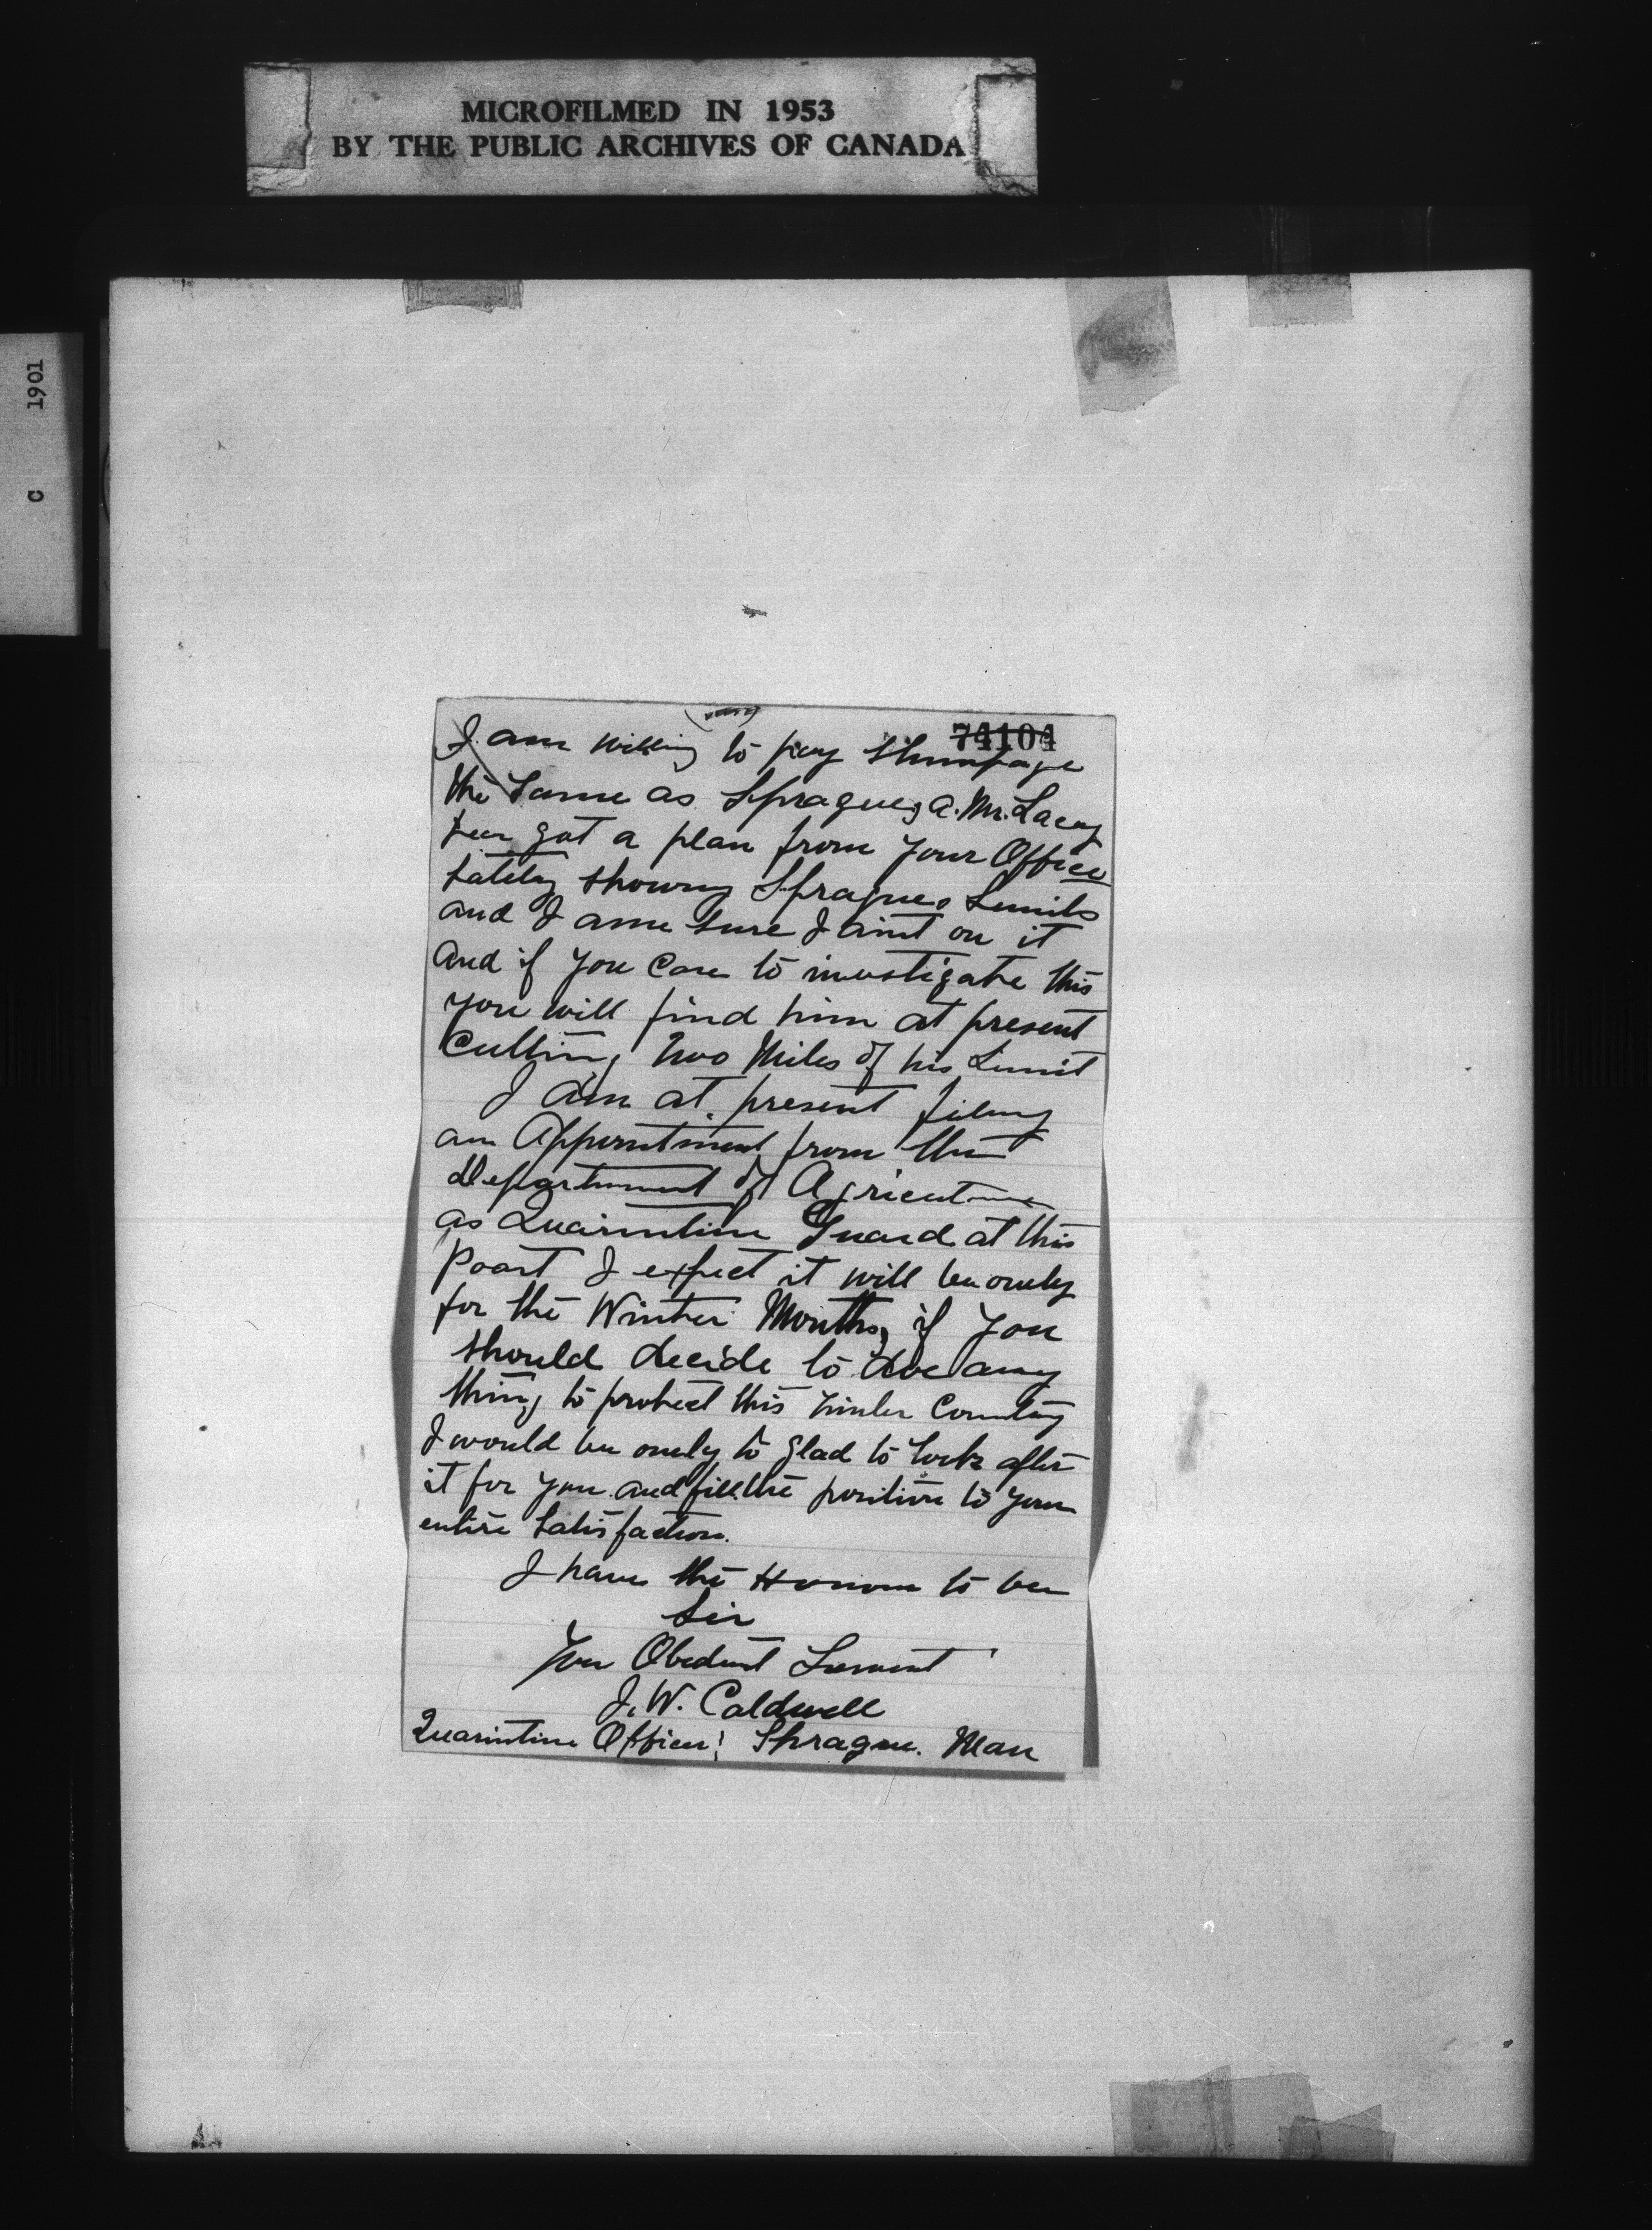 MICROFILMED IN 1953
BY THE PUBLIC ARCHIVES OF CANADA
C 1901
74104
I am willing to pay Stumpage
the Same as Sprague, a. Mr. Lacey
got a plan from your Office
Lately Showing Spragues Limits
and I am Sure I aint on it
And if you Care to investigate this
you will find him at present
Cutting two Miles of his Limit
I am at present filing
an Appointment from the
Department of Agricuture
as Quarintine Guard at this
Poart I expect it will be onely
for the Winter Months, if you
Should decide to doe any
thing to protect this timber Country
I would be onely to glad to look after
it for you and fill the position to your
entire Satisfaction.
I have the Honour to be
Sir
Your Obedient Servent
J. W. Caldwell
Quarintine Officer, Sprague. Man